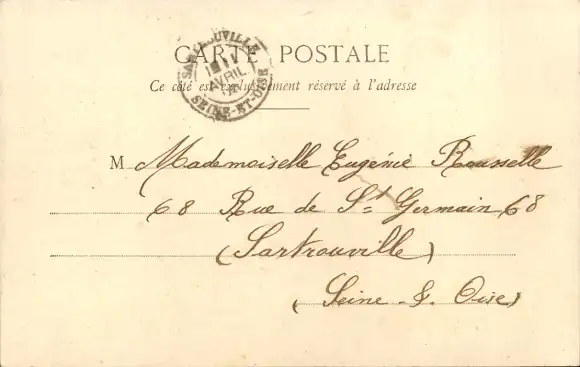 CARTE POSTALE
SARTROUVILLE
AVRIL
SEINE-ET-OISE
Ce côté est exclusivement réservé à l'adresse
M Mademoiselle Eugénie Rousselle
68 Rue de St Germain, 68
(Sartrouville)
(Seine & Oise)